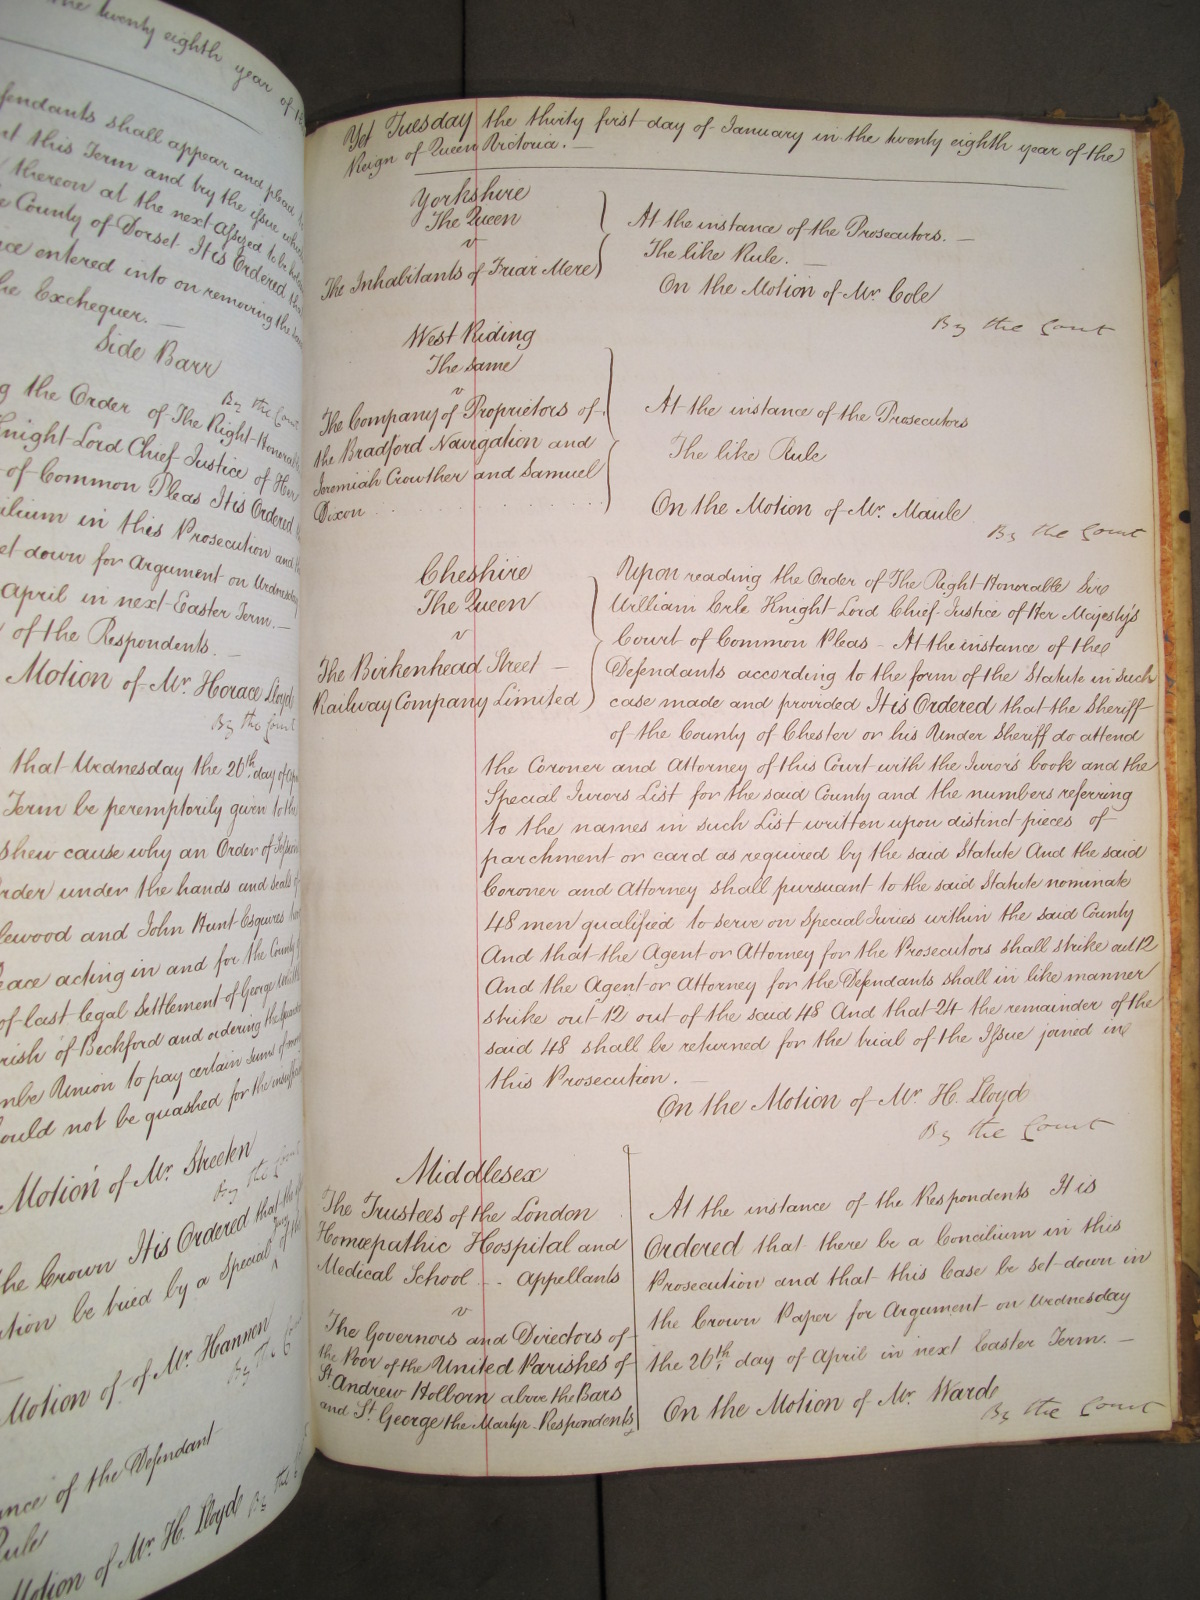 the twenty eighth year of
shall appear and plead
this Term and try the issue
thereon at the next Assizes to be
County of Dorset It is Ordered
entered into on removing the
Exchequer. —
Side Barr
By the Court
the Order of The Right Honorable
Knight Lord Chief Justice of Her
of Common Pleas It is Ordered
in this Prosecution and
down for Argument on Wednesday
April in next Easter Term. —
of the Respondents. —
Motion of Mr. Horace Lloyd
By the Court
that Wednesday the 26th day of
Term be peremptorily given to
shew cause why an Order of
under the hands and seals
and John Hunt Esquires
acting in and for the County
of last legal Settlement of George
of Beckford and ordering the
Union to pay certain sums of
not be quashed for the
Motion of Mr. Streeten
By the Court
the Crown It is Ordered that
be tried by a Special Jury of
Motion of of Mr. Hannen
By the
of the Defendant
Rule
Motion of Mr. H. Lloyd
By the
Yet Tuesday the thirty first day of January in the twenty eighth year of the
Reign of Queen Victoria. —
Yorkshire
The Queen
v
The Inhabitants of Friar Mere
At the instance of the Prosecutors. —
The like Rule. —
On the Motion of Mr. Cole
By the Court
West Riding
The same
v
The Company of Proprietors of
the Bradford Navigation and
Jeremiah Crowther and Samuel
Dixon
At the instance of the Prosecutors
The like Rule
On the Motion of Mr. Maule
By the Court
Cheshire
The Queen
v
The Birkenhead Street —
Railway Company Limited
Upon reading the Order of The Right Honorable Sir
William Erle Knight Lord Chief Justice of Her Majesty's
Court of Common Pleas – At the instance of the
Defendants according to the form of the Statute in such
case made and provided It is Ordered that the Sheriff
of the County of Chester or his Under Sheriff do attend
the Coroner and Attorney of this Court with the Juror's book and the
Special Jurors List for the said County and the numbers referring
to the names in such List written upon distinct pieces of
parchment or card as required by the said Statute And the said
Coroner and Attorney shall pursuant to the said Statute nominate
48 men qualified to serve on Special Juries within the said County
And that the Agent or Attorney for the Prosecutors shall strike out 12
And the Agent or Attorney for the Defendants shall in like manner
strike out 12 out of the said 48 And that 24 the remainder of the
said 48 shall be returned for the trial of the Issue joined in
this Prosecution. —
On the Motion of Mr. H. Lloyd
By the Court
Middlesex
The Trustees of the London
Homœpathic Hospital and
Medical School . . . Appellants
v
The Governors and Directors of
the Poor of the United Parishes of
St. Andrew Holborn above the Bars
and St. George the Martyr – Respondents
At the instance of the Respondents It is
Ordered that there be a Concilium in this
Prosecution and that this Case be set down in
the Crown Paper for Argument on Wednesday
the 26th day of April in next Easter Term. —
On the Motion of Mr. Ward
By the Court